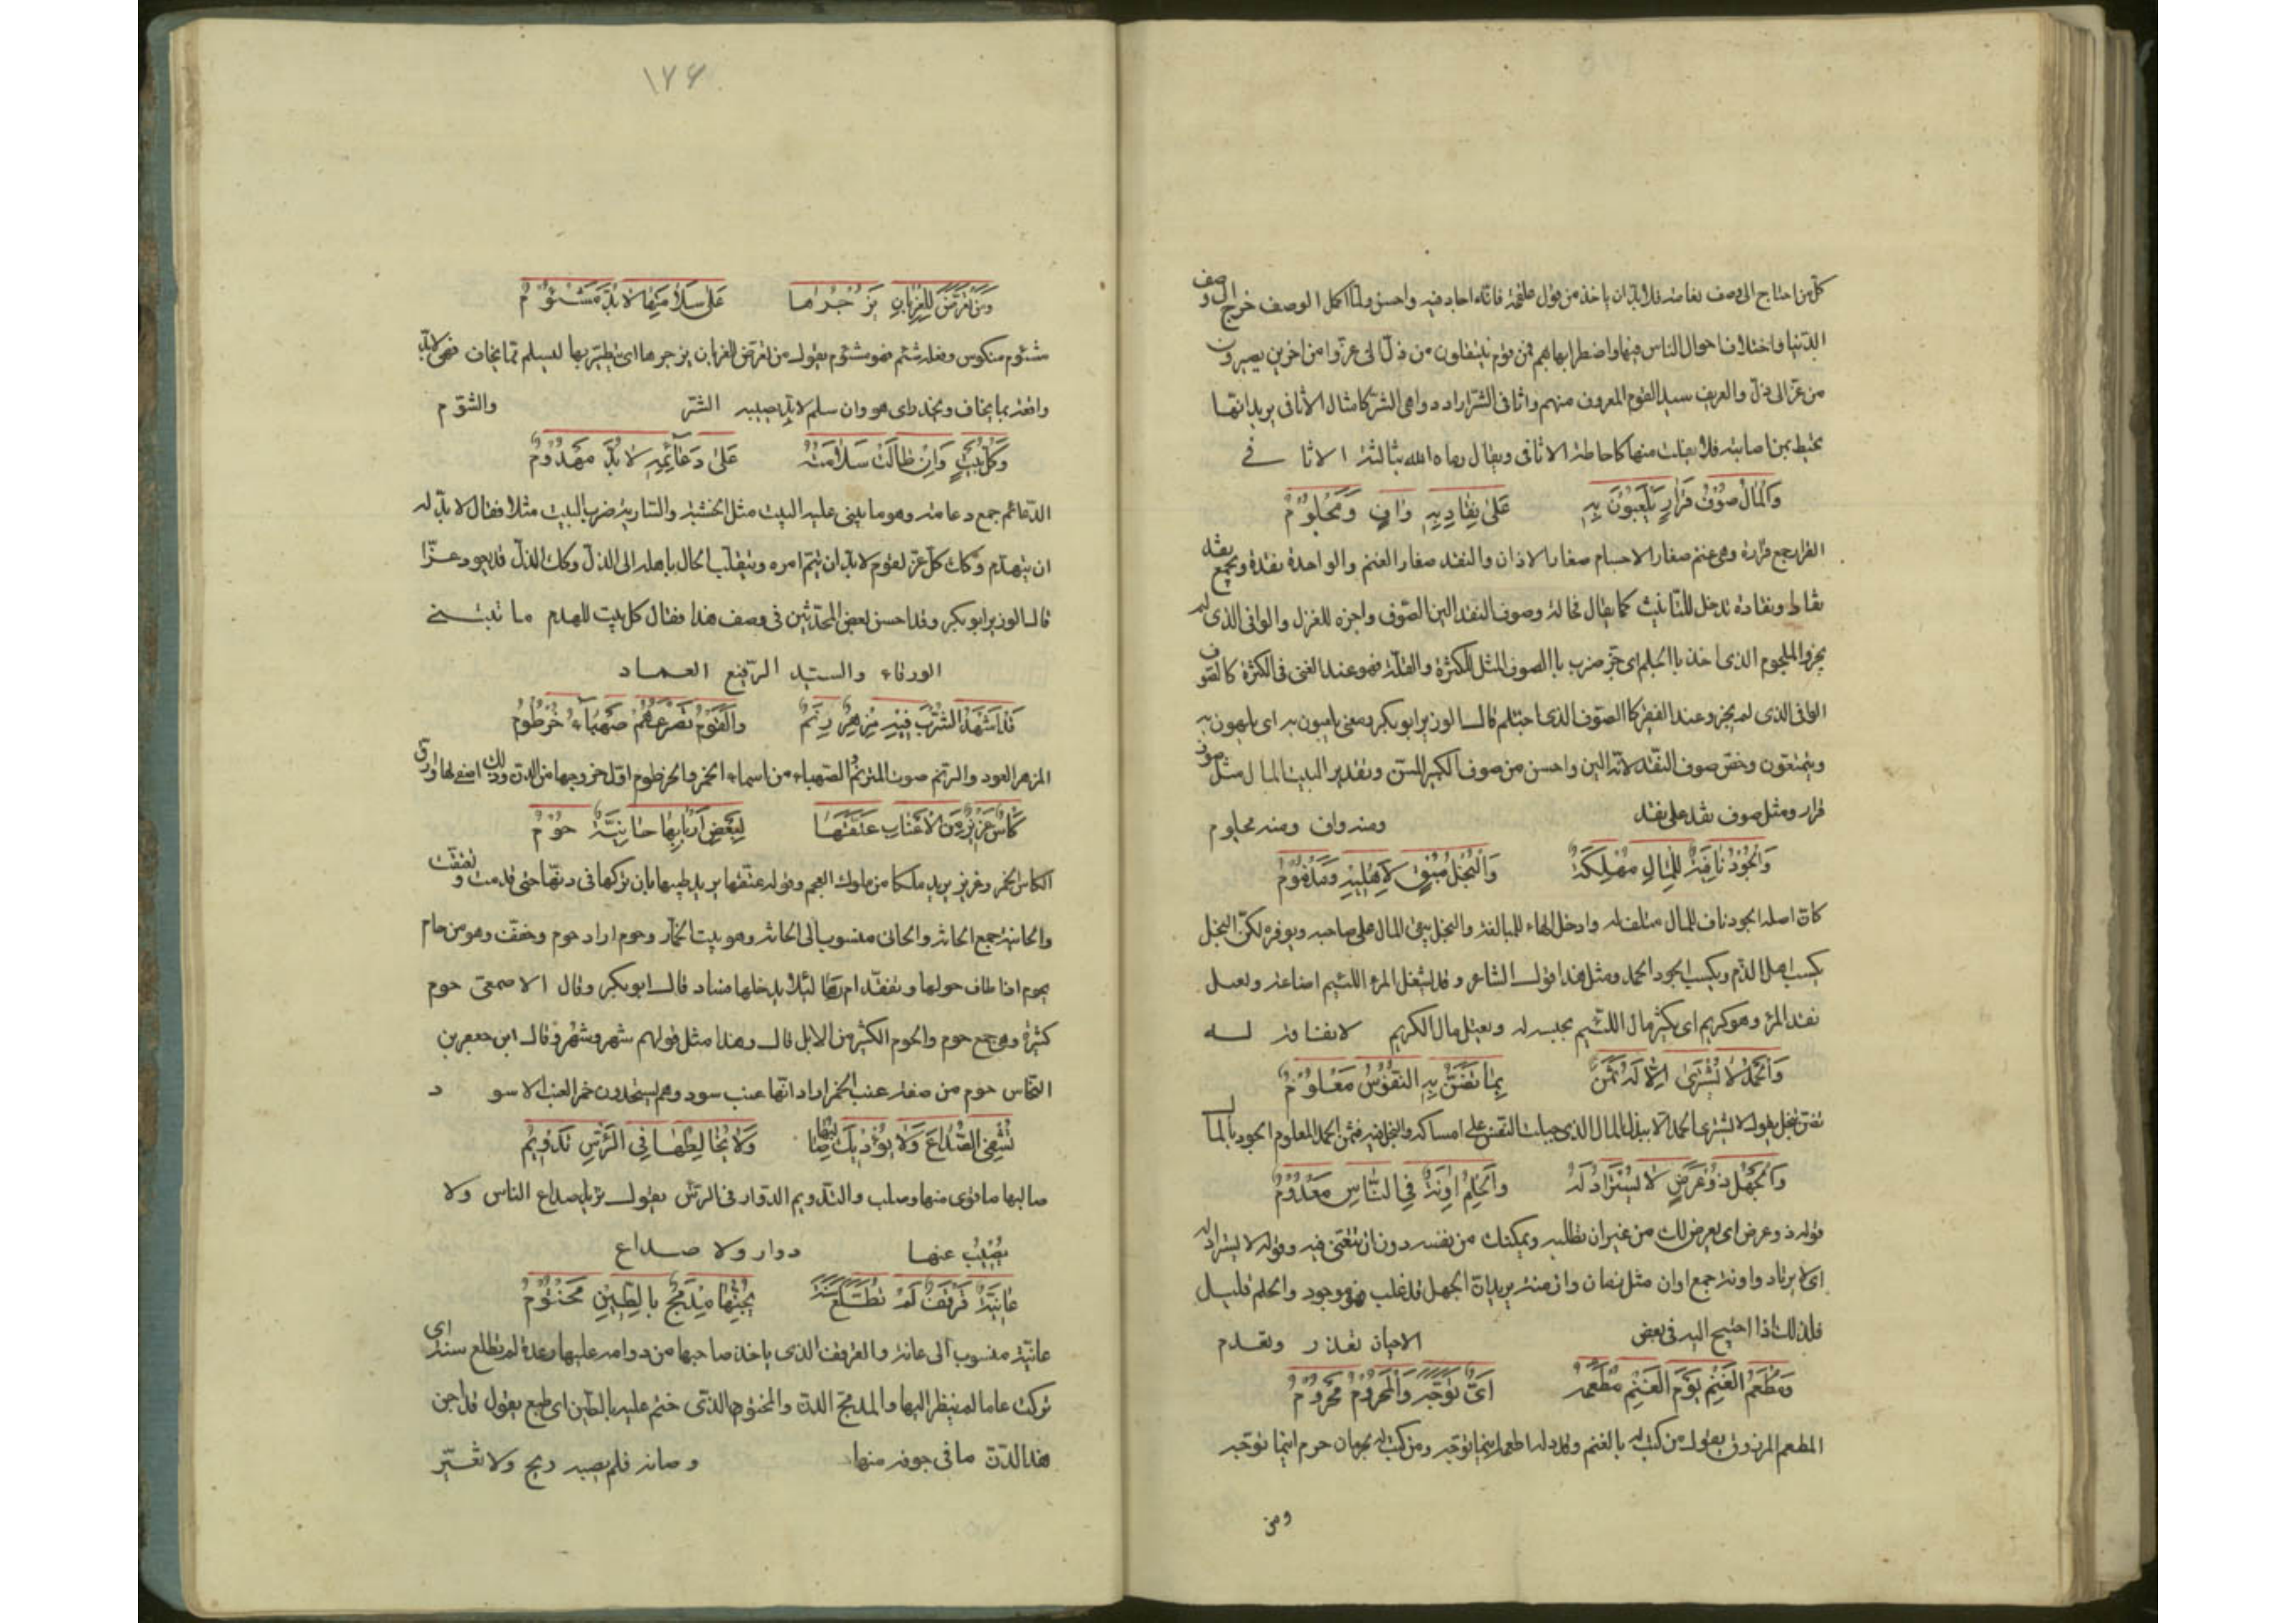 كل من احتاج الى وصف نعامة فلا بد ان ياخذ من قول علقمة فانه اجاد فيه واحسن ولما اكمل الوصف خرج الى وصف
الدنيا واختلاف احوال الناس فيها واضطرابها بهم فمن قوم ينتقلون من ذل الى عز وامن اخرين يصيرون
من عز الى ذل والعريف سيد القوم المعروف منهم واثافى الشر اراد دواهى الشر كامثال الاثافى يريد انها
تحيط بمن اصابته فلا يفلت منها كاحاطة الاثافى ويقال رماه الله بثالثة الاثا فى
وَالمَالُ صُوْفُ قَرَارٍ يَلْعَبُوْنَ بِهِ عَلىٰ نِقَادِهِ وَافٍ وَمَجْلُوْمُ
القرار جمع قرارة وهى غنم صغار الاجسام صغار الاذان والنقد صغار الغنم والواحدة نقدة ويجمع نقد
نقاط ونقادة تدخل للتانيث كما يقال فحالة وصوف النقد الين الصوف واجزه للغزل والوافى الذى لم
يجز والملجوم الذى اخذ باالجلم اى جز ضرب باالصوف المثل للكثرة والقلة فهو عند الغنى فى الكثرة كالصوف
الوافى الذى لم يجز وعند الفقر كاالصوف الذى اجتلم قال الوزير ابو بكر ومعنى يلعبون به اى يلهون به
ويتمتعون وخص صوف النقد لانه الين واحسن من صوف الكبير المسن وتقدير البيت المال مثل صوف
قرار ومثل صوف نقد على نقد ومنه واف ومنه مجلوم
وَالجُوْدُ نَافِيَةٌ لِلْمَالِ مَهْلَكَةٌ وَالْبُخْلُ مُبْقٍ لِاَهْلِيْهِ وَمَذْمُوْمُ
كان اصله الجود ناف للمال متلف له وادخل الهاء للمبالغة والبخل يبقى المال على صاحبه ويوفره لكن البخل
يكسب اهله الذم ويكسب الجود الحمد ومثل هذا قول الشاعر وقد يشغل المرء اللئيم اضاعة وتعسل
نقد المرء وهو كريم اى يكثر مال اللئيم بحبسه له ويقل مال الكريم لانفاقه لــه
وَالحَمْدُ لَا يُشْتَرىٰ اِلَّا لَهُ ثَمَنٌ مِمَّا تَضَنُّ بِهِ النُّفُوْسُ مَعْلُوْمُ
تضن تبخل يقول لا يشترى الحمد الا ببذل المال الذى جبلت النفس على امساكه والبخل فيه فثمن الحمد المعلوم الجود بالمال
وَالجَهْلُ ذُوْ عَرَضٍ لَا يُسْتَرَادُ لَهُ وَالحِلْمُ اٰوِنَةً فِي النَّاسِ مَعْدُوْمُ
قوله ذو عرض اى يعرض لك من غير ان تطلبه ويمكنك من نفسه دون ان تتعنى فيه وقوله لا يستراد له
اى لا يرتاد واونة جمع اوان مثل زمان وازمنة يريد ان الجهل قد غلب فهو موجود والحلم قليــل
فلذلك اذا احتيج اليه فى بعض الاحيان تعذر وتعدم
وَمُطْعَمُ الغُنْمِ يَوْمَ الغُنْمِ مُطْعَمُهُ اَنّىٰ تَوَجَّهَ وَالْمَحْرُوْمُ مَحْرُوْمُ
المطعم المرزوق يقول من كتب له بالغنم وقدر له اطعمه اينما توجه ومن كتب له بحرمان حرم اينما توجه
ومن
١٧٤
وَمَنْ تَعَرَّضَ لِلْغِرْبَانِ يَزْجُرُهَا عَلىٰ سَلَامَتِهَا لَا بُدَّ مَشْئُوْمُ
مشئوم منكوس وفعله شئم فهو مشئوم يقول من تعرض الغربان يزجرها اى يتطير بها ليسلم مما يخاف فهى لابد
واقعة بما يخاف ويحذر اى هو وان سلم لا بد يصيبه الشر والشؤم
وَكُلُّ بَيْتٍ وَاِنْ طَالَتْ سَلَامَتُهُ عَلىٰ دَعَائِمِهِ لَا بُدَّ مَهْدُوْمُ
الدعائم جمع دعامة وهو ما يبنى عليه البيت مثل الخشبة والسارية ضرب البيت مثلا فقال لا بد له
ان يتهدم وكذلك كل عز لقوم لا بد ان يتم امره وينقلب الحال باهله الى الذل وكذلك الذل قد يعود عــزا
قال الوزير ابو بكر وقد احسن بعض المحدثين فى وصف هذا فقال كل بيت للهدم ما تبتــنى
الورقاء والسيد الرفيع العمــاد
قَدْ اَشْهَدُ الشُّرْبَ فِيْهِمْ مِزْهَرٌ رَنِمٌ وَالْقَوْمُ تَصْرَعُهُمْ صَهْبَاءُ خُرْطُوْمُ
المزهر العود والرنم صوت المترنم والصهباء من اسماء الخمر والخرطوم اول خروجها من الدن وذلك اصفى لها وارق
كَأْسُ عَزِيْزٍ مِنَ الْاَعْنَابِ عَتَّقَهَا لِبَعْضِ اَرْبَابِهَا حَانِيَّةٌ حُوْمُ
الكاس الخمر وعزيز يريد ملكا من ملوك العجم وقوله عتقها يريد طيبها بان تركها فى دنها حتى قدمت وتعتقت
والحانية جمع الحانة والحانى منسوب الى الحانة وهو بيت الخمار وحوم اراد حوم وخفف وهو من حام
يحوم اذا طاف حولها وتفقد امرها لئلا يدخلها فساد قال ابو بكر وقال الاصمعى حوم
كثيرة وهو جمع حوم والحوم الكثير من الابل قال وهذا مثل قولهم شهر وشهر وقال ابن جعفر بن
النحاس حوم من صفة عنب الخمر اراد انها عنب سود وهم يستجدون خمر العنب الاسو د
تَشْفِى الصُّدَاعَ وَلَا يُؤْذِيْكَ صَالِبُهَا وَلَا يُخَالِطُهَا فِي الرَّأْسِ تَدْوِيْمُ
صالبها ما قوى منها وصلب والتدويم الدوار فى الراس يقول تزيل صداع الناس ولا
يُصِيْبُ عنهــا دوار ولا صــداع
عَانِيَّةٌ قَرْقَفٌ لَمْ تُطَّلَعْ سَنَةً يُجِنُّهَا مُدْمَجٌ بِالطِّيْنِ مَخْتُوْمُ
عانية منسوب الى عانة والقرقف الذى ياخذ صاحبها من دوامه عليها رعدة لم تطلع سنة اى
تركت عاما لم ينظر اليها والمدمج الدن والمختوم الذى ختم عليه بالطين اى طبع يقول قد اجن
هذا الدن ما فى جوفه منها وصانه فلم يصبه ريح ولا تغــير